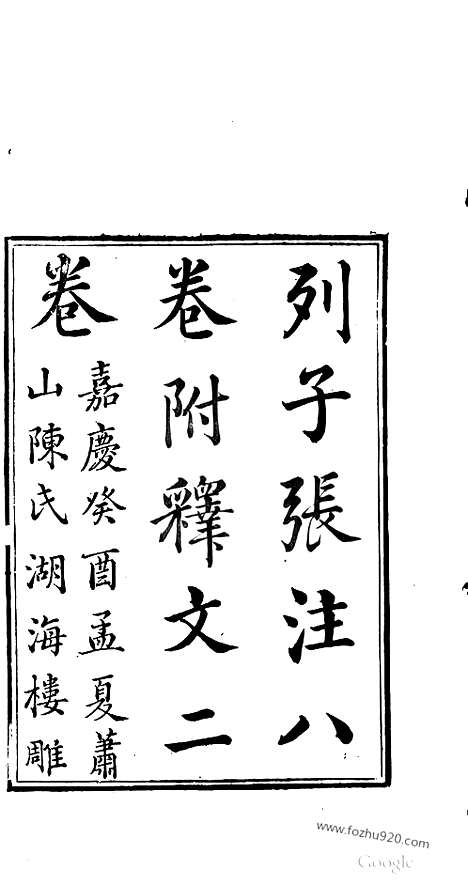 列子張注八
卷附釋文二
卷
嘉慶癸酉孟夏蕭
山陳氏湖海樓雕
www.fozhu920.com
Google